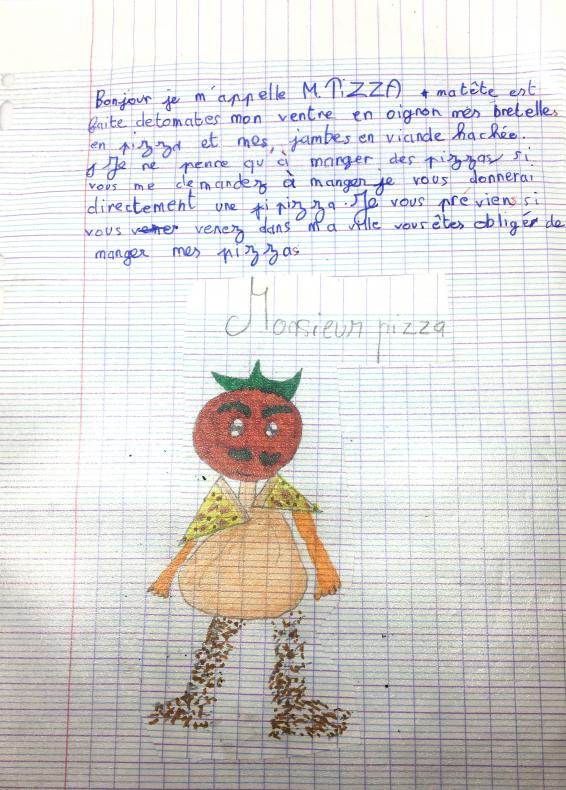 Bonjour je m'appelle M. PiZZA ma tête est
faite detomates mon ventre en oignon mes bretelles
en pizza et mes, jambes en viande hachée.
Je ne pence qu'à manger des pizzas si
vous me demandez à manger je vous donnerai
directement une pi pizza. Je vous préviens si
vous venez dans ma ville vous êtes obligér de
manger mes pizzas
Monsieur pizza